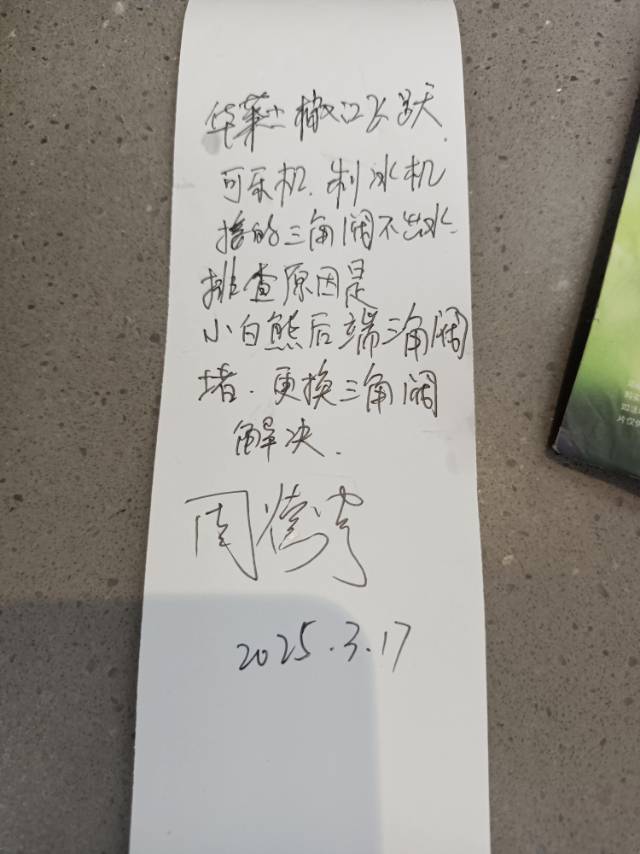 华莱士横江飞跃
可乐机.制冰机
接的三角阀不出水.
排查原因是
小白熊后端三角阀
堵.更换三角阀
解决.
周
2025.3.17